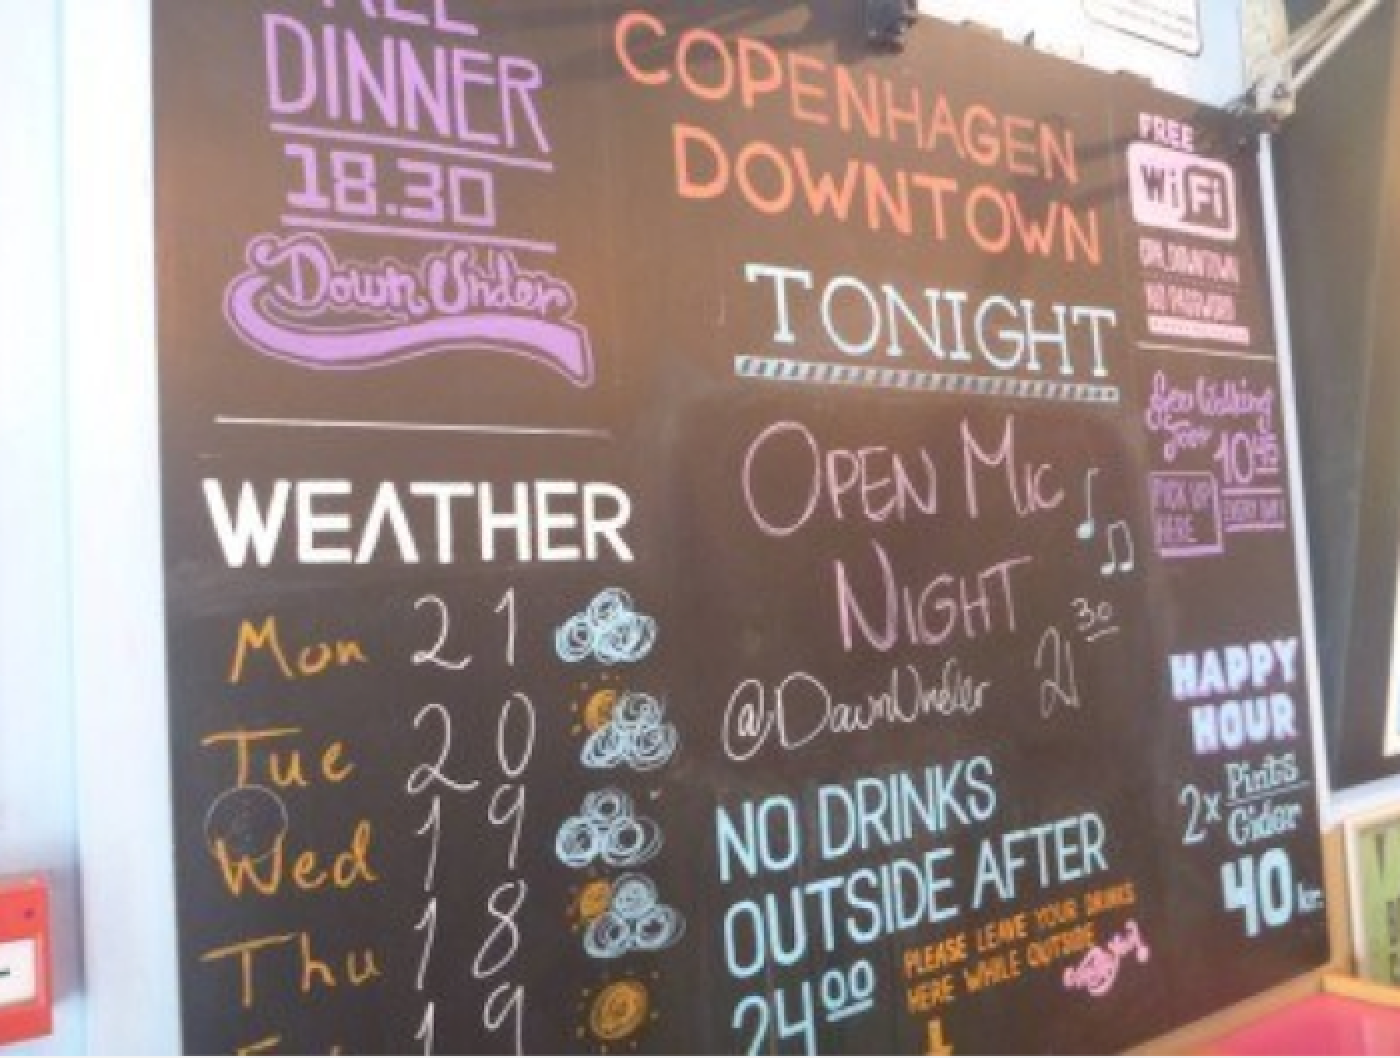 DINNER
18.30
Down Under
WEATHER
Mon 21
Tue 20
Wed 19
Thu 18
19
COPENHAGEN
DOWNTOWN
TONIGHT
OPEN MIC
NIGHT
@DownUnder 21 30
NO DRINKS
OUTSIDE AFTER
24 00
PLEASE LEAVE YOUR DRINKS
HERE WHILE OUTSIDE
FREE
WiFi
DOWNTOWN
NO PASSWORD
Walking
Tour 10 45
PICK UP
HERE
EVERY DAY!
HAPPY
HOUR
2x Pints
Cider
40 kr.